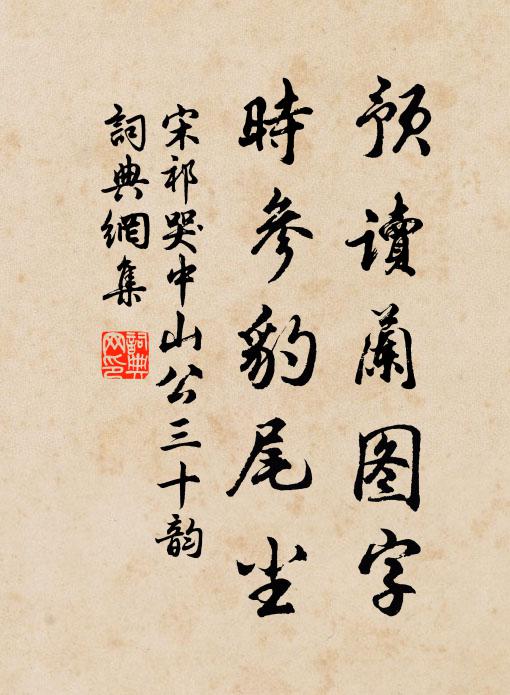 預讀蘭图字
時參豹尾尘
宋祁哭中山公三十韵
詞典網集
詞典網印